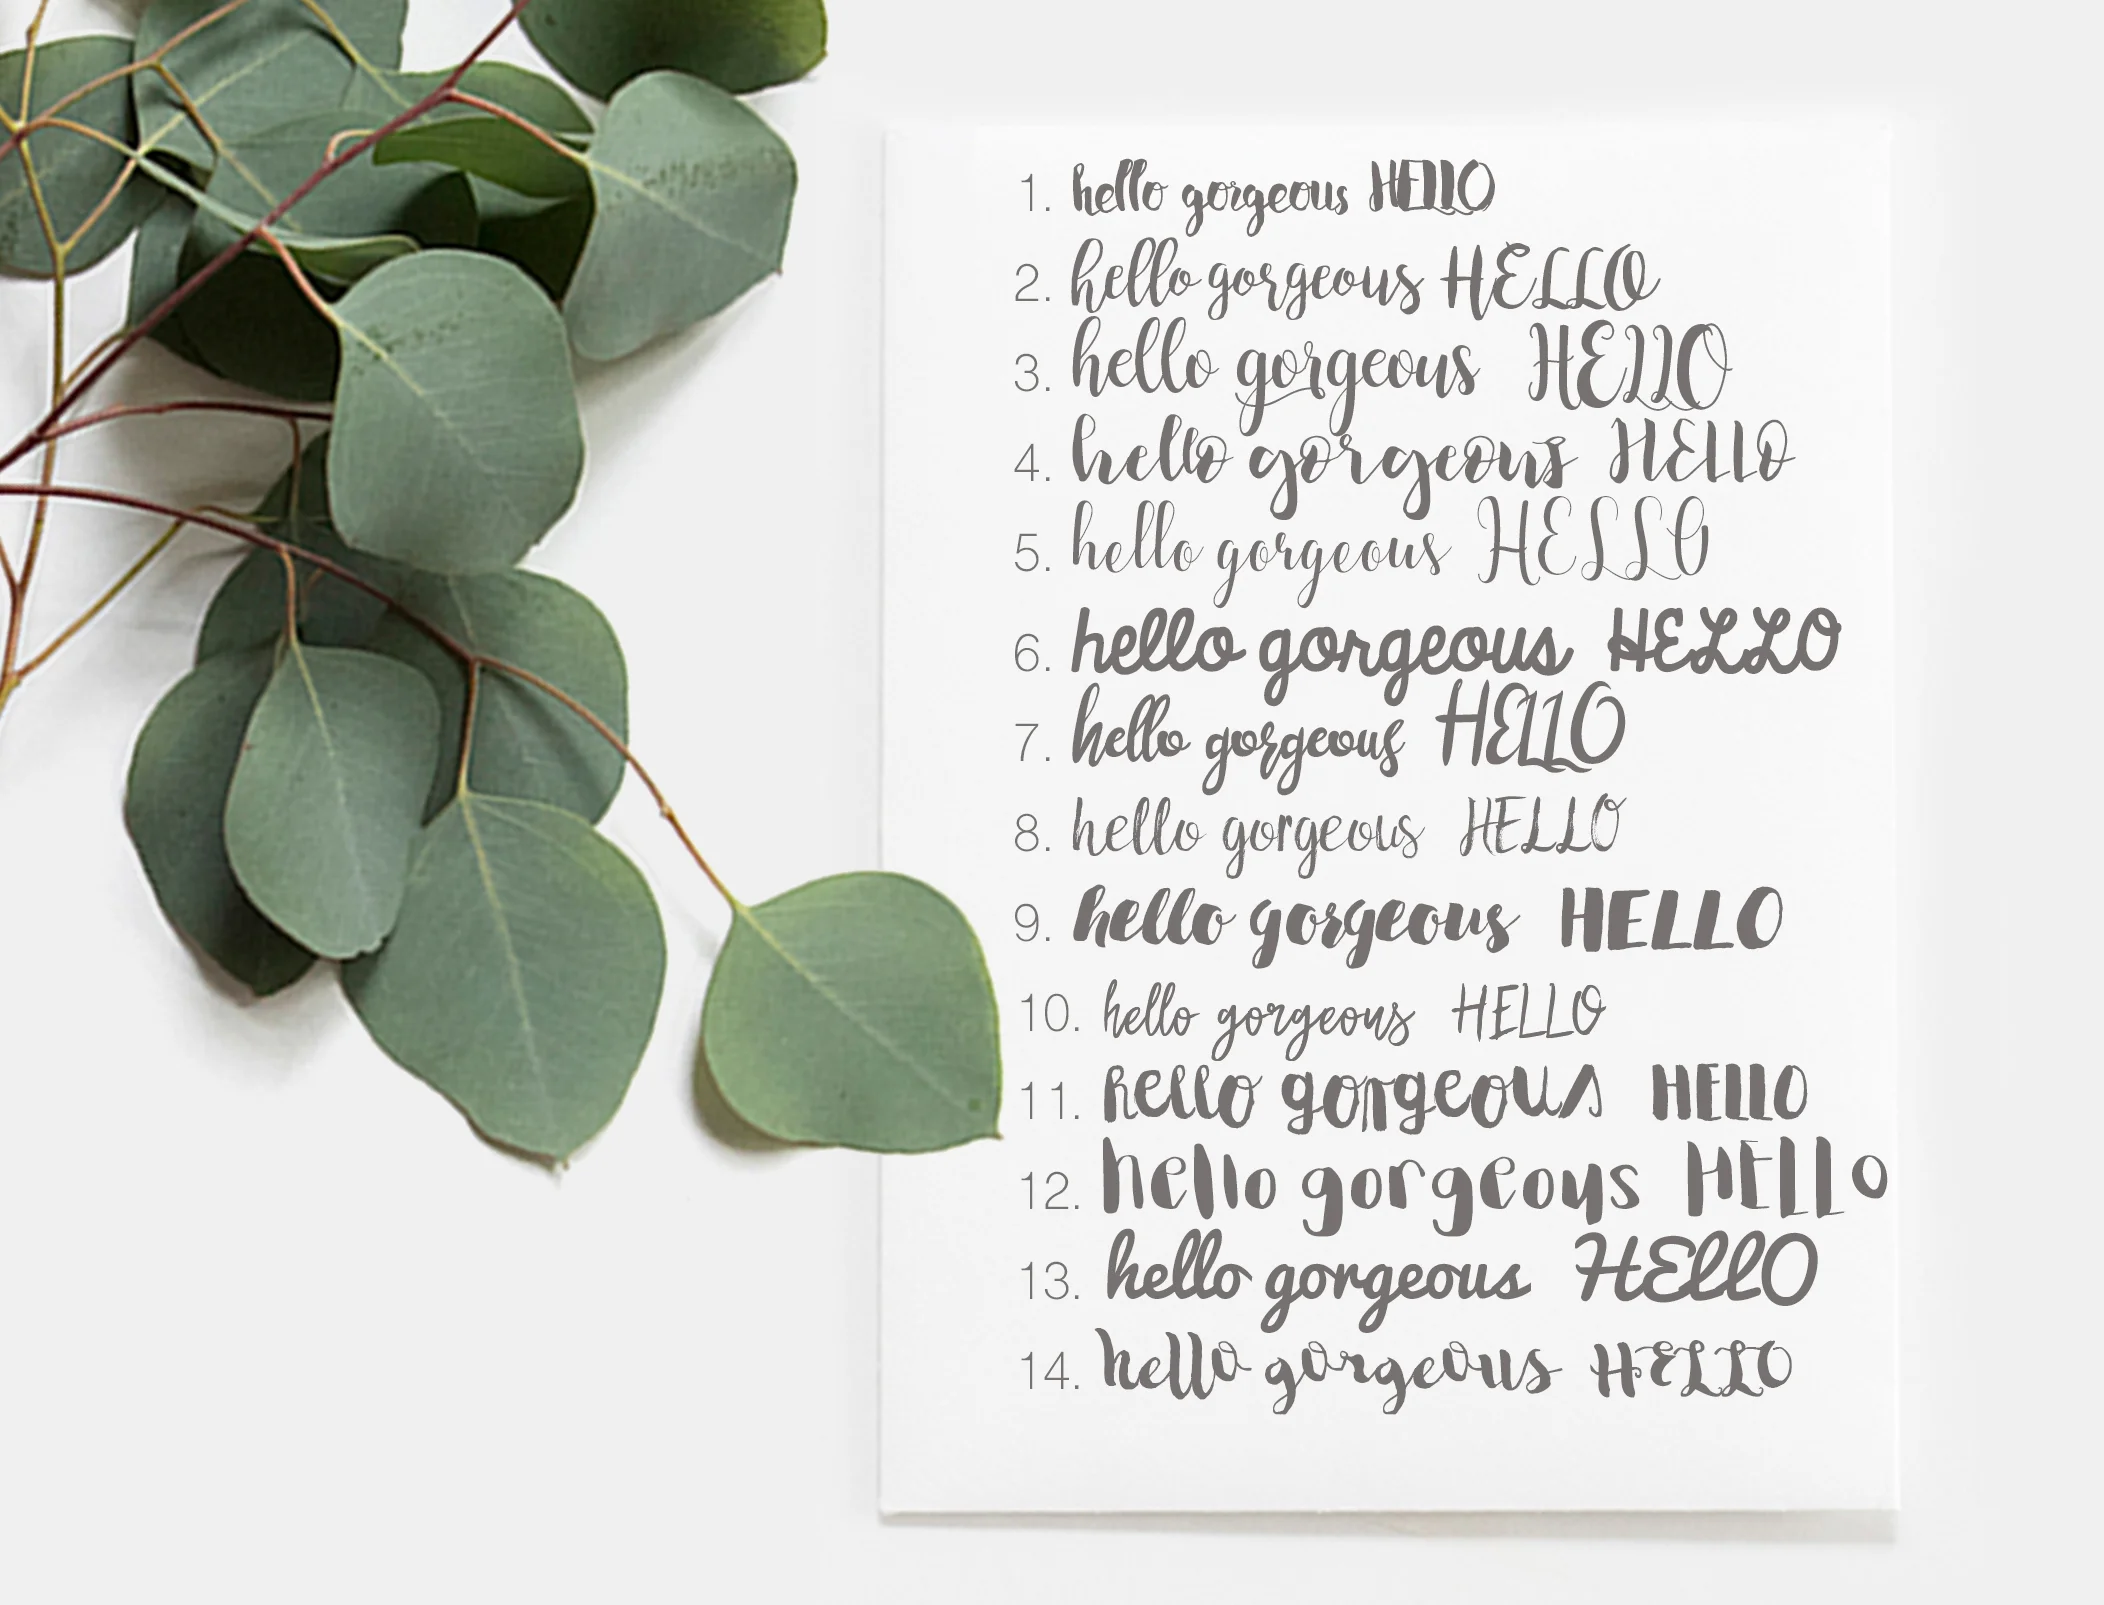 1. hello gorgeous HELLO
2. hello gorgeous HELLO
3. hello gorgeous HELLO
4. hello gorgeous HELLO
5. hello gorgeous HELLO
6. hello gorgeous HELLO
7. hello gorgeous HELLO
8. hello gorgeous HELLO
9. hello gorgeous HELLO
10. hello gorgeous HELLO
11. hello gorgeous HELLO
12. hello gorgeous HELLO
13. hello gorgeous HELLO
14. hello gorgeous HELLO